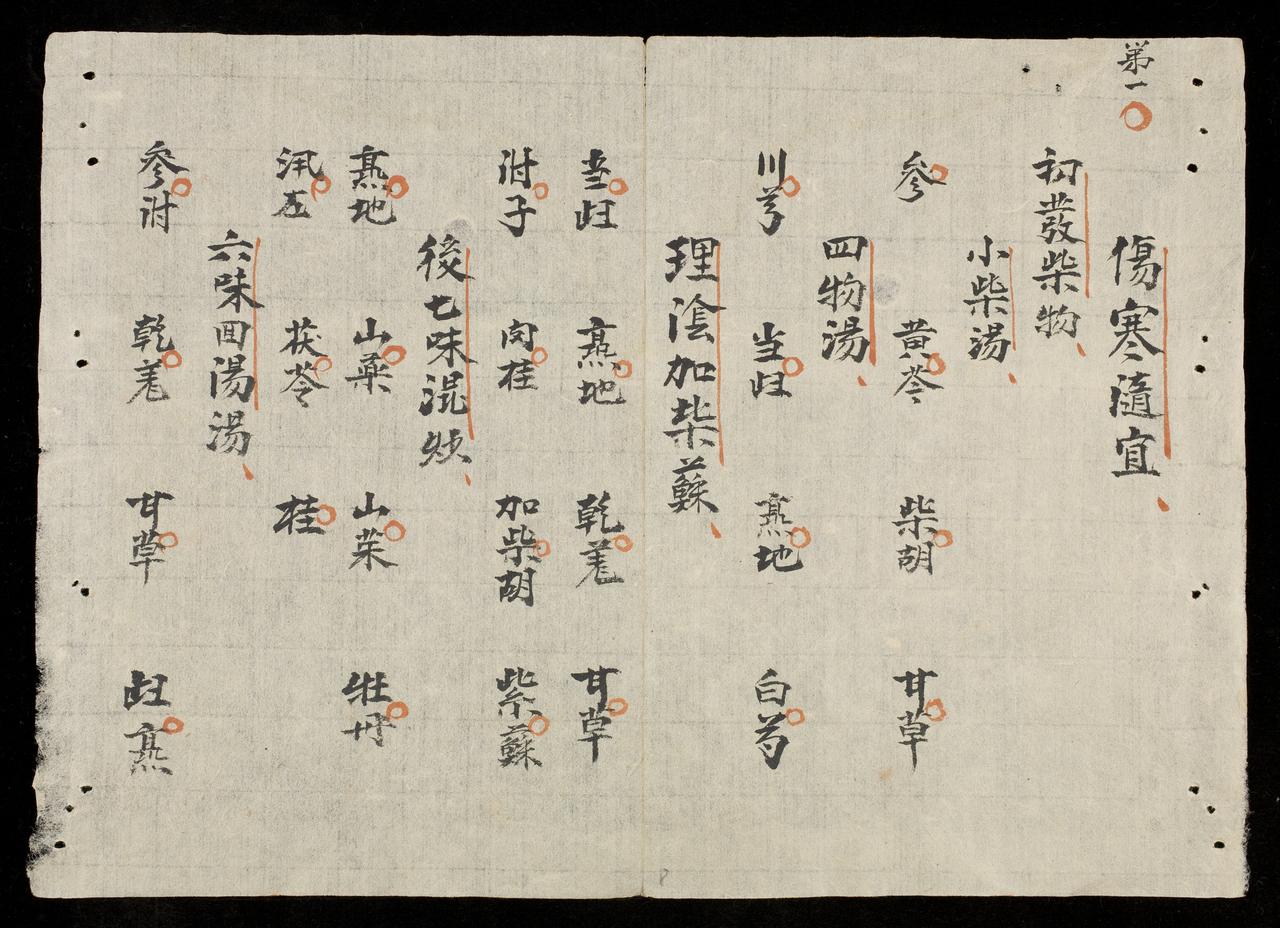 第一
傷寒隨宜
初發柴物
小柴湯
參 黄芩 柴胡 甘草
四物湯
川芎 当歸 熟地 白芍
理陰加柴蘇
当歸 熟地 乾羌 甘草
泔子 肉桂 加柴胡 紫蘇
後七味混煩
熟地 山藥 山茱 牡丹
茯苓 桂
六味回湯湯
參泔 乾羌 甘草 歸熟